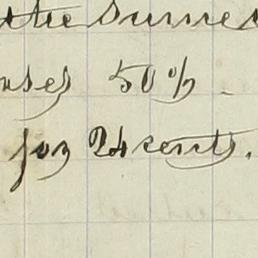 the Surne
uses 50% -
for 24 cents.